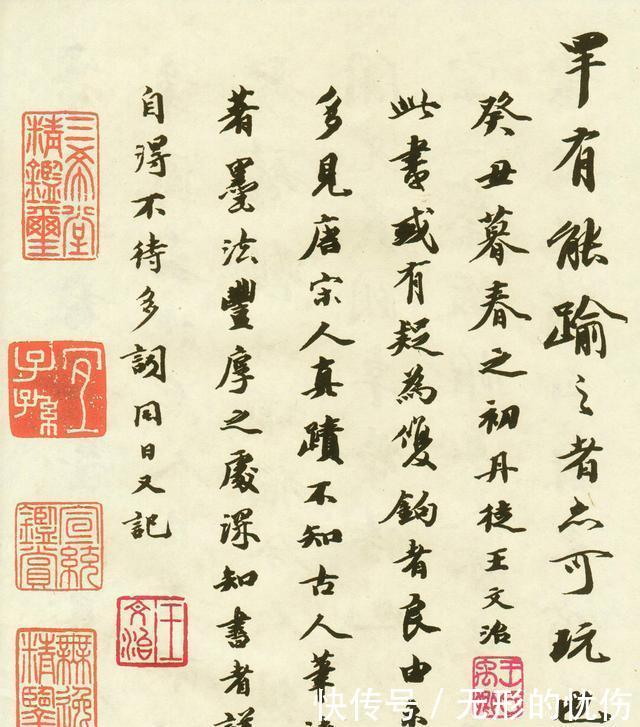 罕有能踰之者亦可玩
癸丑暮春之初丹徒王文治
此書或有疑為雙鉤者良由
多見唐宋人真蹟不知古人筆
著墨法豐厚之處深知書者
自得不待多詞同日又記
三希堂精鑑璽
宜子孫
宣統鑑賞
無逸精鑒
王文治
快传号 / 无形的忧伤